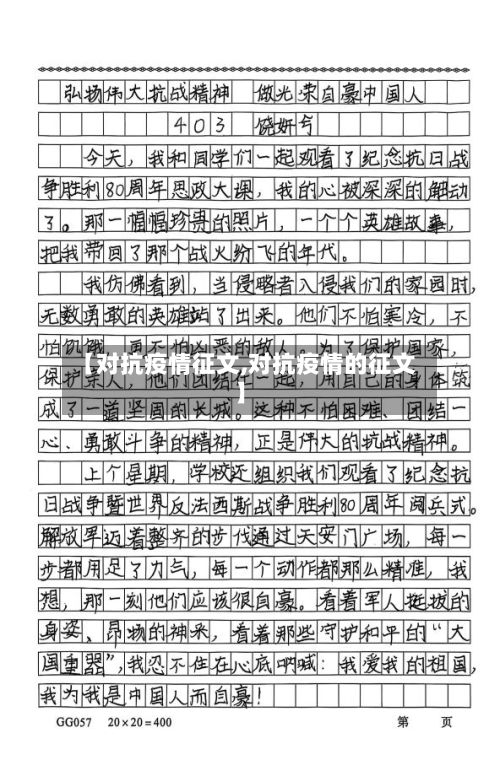 弘扬伟大抗战精神 做光荣自豪中国人
403 饶妍兮
今天，我和同学们一起观看了纪念抗日战
争胜利80周年思政大课，我的心被深深的触动
了。那一幅幅珍贵的照片，一个个英雄故事，
把我带回了那个战火纷飞的年代。
我仿佛看到，当侵略者入侵我们的家园时，
无数勇敢的英雄站了出来。他们不怕寒冷，不
怕饥饿，更不怕凶恶的敌人。为了保护国家，
【对抗疫情征文,对抗疫情的征文
】
保护亲人，他们团结在一起，用自己的身体筑
成了一道坚固的长城。这种不怕困难、团结一
心、勇敢斗争的精神，正是伟大的抗战精神。
上个星期，学校还组织我们观看了纪念抗
日战争暨世界反法西斯战争胜利80周年阅兵式。
解放军迈着整齐的步伐通过天安门广场，每一
步都用足了力气，每一个动作都那么精准，我
想，那一刻他们应该很自豪。看着军人挺拔的
身姿、昂扬的神采，看着那些守护和平的“大
国重器”，我忍不住在心底呐喊：我爱我的祖国，
我为我是中国人而自豪！
GG057 20×20=400 第 页